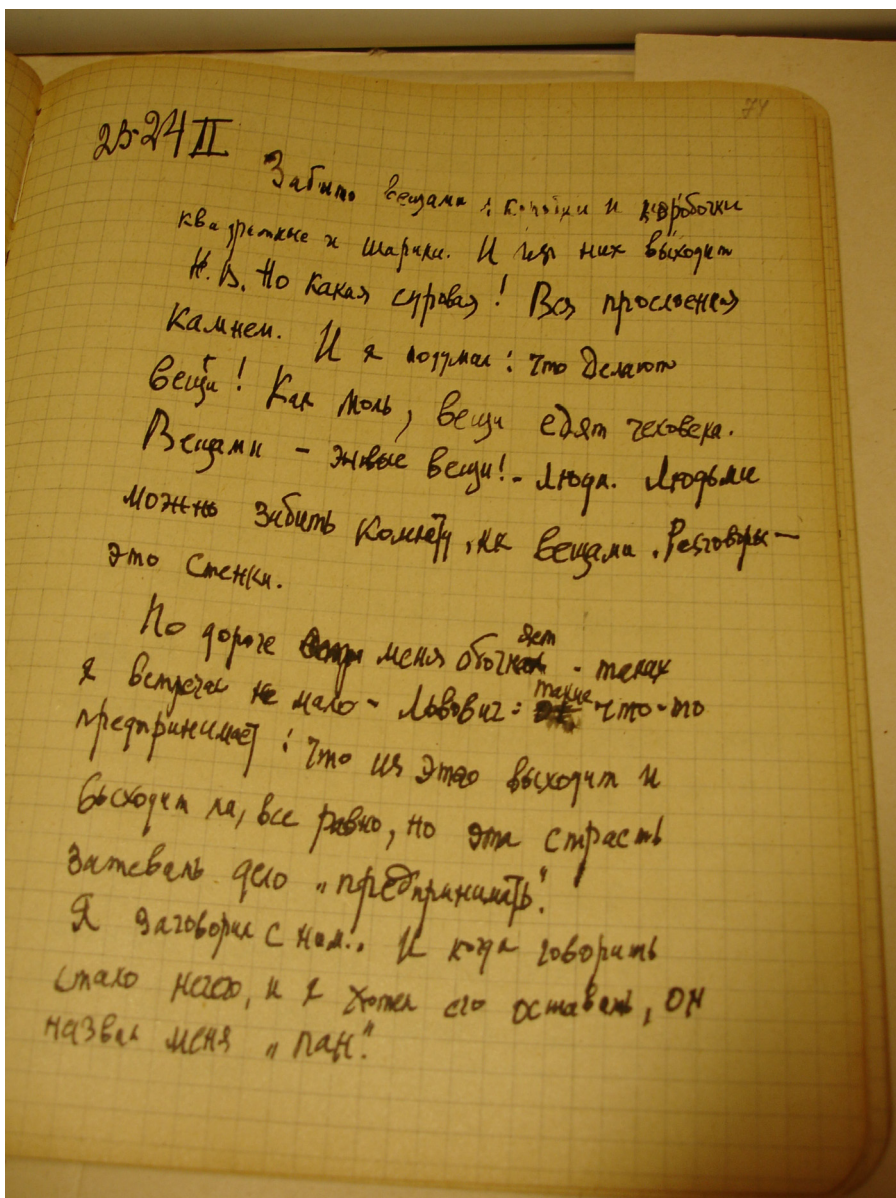 74
23-24 II
Забито вещами: и коробочки
квадратные и шарики. И из них выходит
Н.В. Но какая суровая! Вся прослоенная
камнем. И я подумал: что делают
вещи! Как моль, вещи едят человека.
Вещами - живые вещи! - люди. Людьми
можно забить комнату, как вещами. Разговоры —
это стенки.
По дороге меня обгоняет - таких
я встречал не мало - Львович: такие что-то
предпринимает: что из этого выходит и
выходит ли, все равно, но эта страсть
затевать дело „предпринимать".
Я заговорил с ним.. И когда говорить
стало нечего, и я хотел его оставить, он
назвал меня „пан".